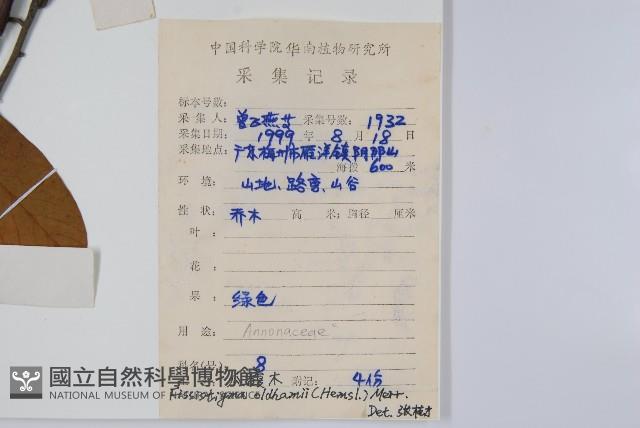 中国科学院华南植物研究所
采集记录
标本号数：
采集人：曾飞燕 采集号数：1932
采集日期：1999年8月18日
采集地点：广东梅州市雁洋镇阴那山
海拔 600 米
环境：山地、路旁、山谷
性状：乔木 高 米；胸径 厘米
叶：
花：
果：绿色
用途：Annonaceae
科名(号) 8
木 附记：4份
國立自然科學博物館
NATIONAL MUSEUM OF
Fissistigma oldhamii (Hemsl.) Merr.
Det. 张桂才